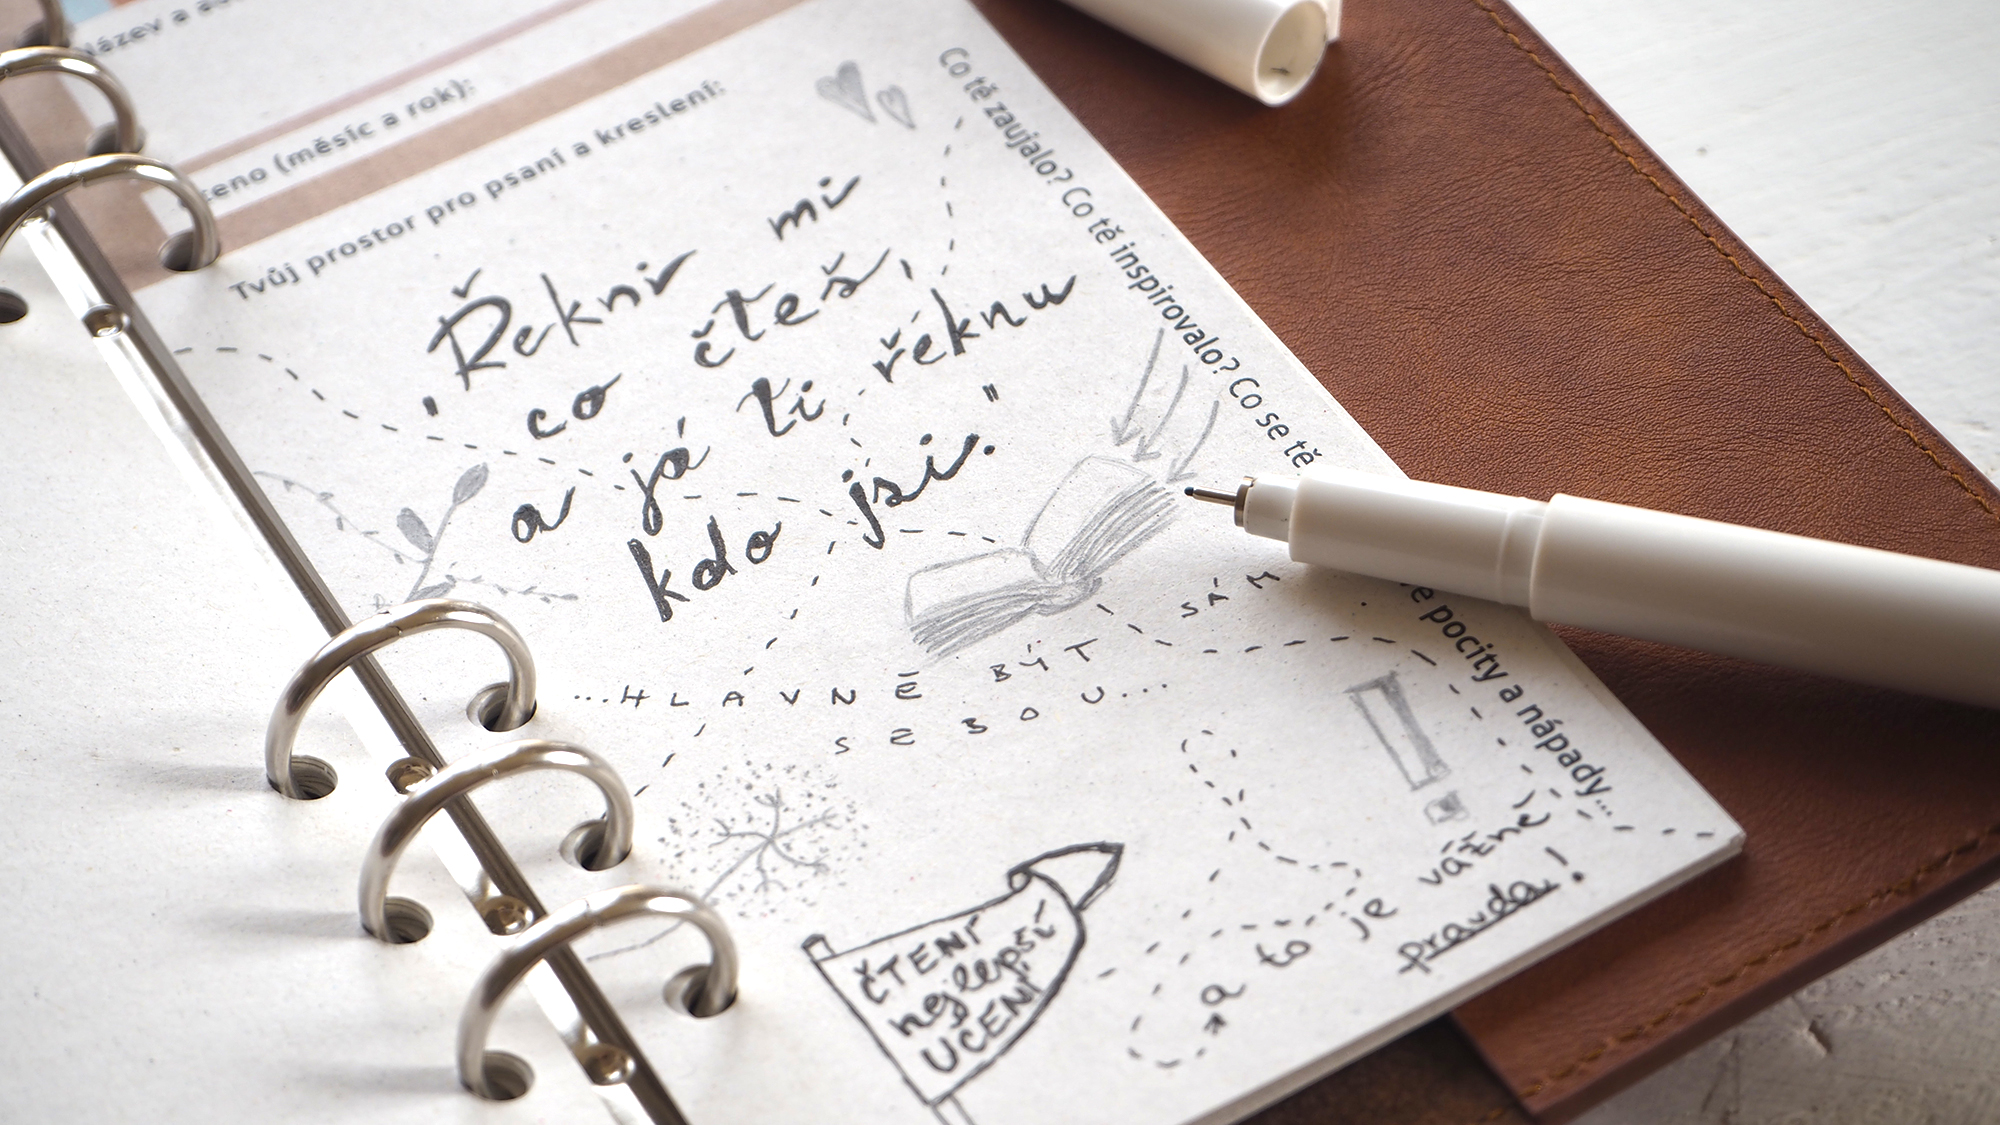 Název a
čteno (měsíc a rok):
Tvůj prostor pro psaní a kreslení:
Co tě zaujalo? Co tě inspirovalo? Co se tě
pocity a nápady...
"Řekni mi
co čteš,
a já ti řéknu
kdo jsi."
...HLÁVNĚ BÝT SÁM
SEBOU...
ČTENÍ
nejlepší
UČENÍ
a to je vážně
pravda!